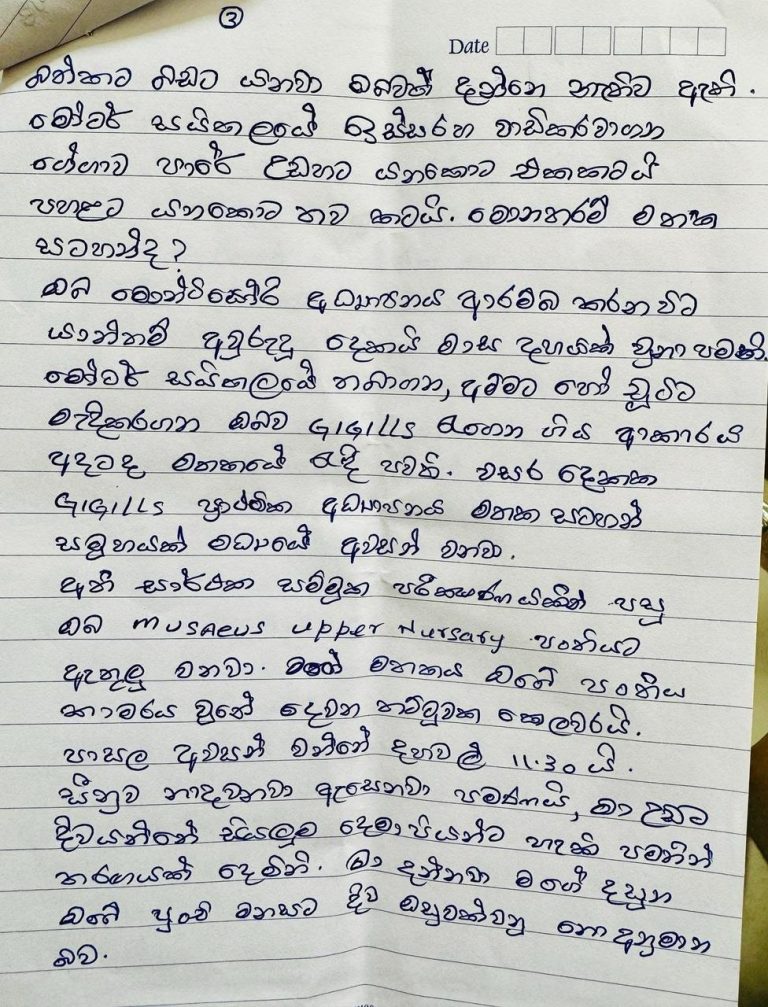 ③
Date
බත්කට බඩට යනවා ඔබවත් දන්නෙ නැතිව ඇති.
මෝටර් සයිකලයේ ඉස්සරහ වාඩිකරවාගන
ගේගාව පාරේ උඩහට යනකොට එකකටයි
පහළට යනකොට තව කටයි. මොනතරම් මතක
සටහන්ද?
ඔබ මොන්ටිසෝරි අධ්‍යාපනය ආරම්බ කරන විට
යාන්තම් අවුරුදු දෙකයි මාස දහයක් වුනා පමණි.
මෝටර් සයිකලයේ තබාගන, අම්මට හෝ චූටිට
මැදිකරගන ඔබව GIGILLS රැගෙන ගිය ආකාරය
අදටද මතකයේ රැඳී පවතී. වසර දෙකක
GIGILLS ප්‍රාථමික අධ්‍යාපනය මතක සටහන්
සමූහයක් මධ්‍යයේ අවසන් වනවා.
අති සාර්ථක සම්මුක පරීක්ෂණයකින් පසු
ඔබ musaeus upper Nursary පංතියට
ඇතුලු වනවා. මගේ මතකය ඔබේ පංතිය
කාමරය වුනේ දෙවන තට්ටුවක කෙලවරයි.
පාසල අවසන් වන්නේ දහවල් 11.30 යි.
සීනුව නාදවනවා ඇසෙනවා පමණයි, මා උඩට
දිවයන්නේ සියලුම දෙමාපියන්ට හැකි පමනින්
තරගයක් දෙමිනි. මා දන්නවා මගේ දසුන
ඔබේ පුංචි මනසට දිව ඔසුවක්වනු නොඅනුමාන
බව.